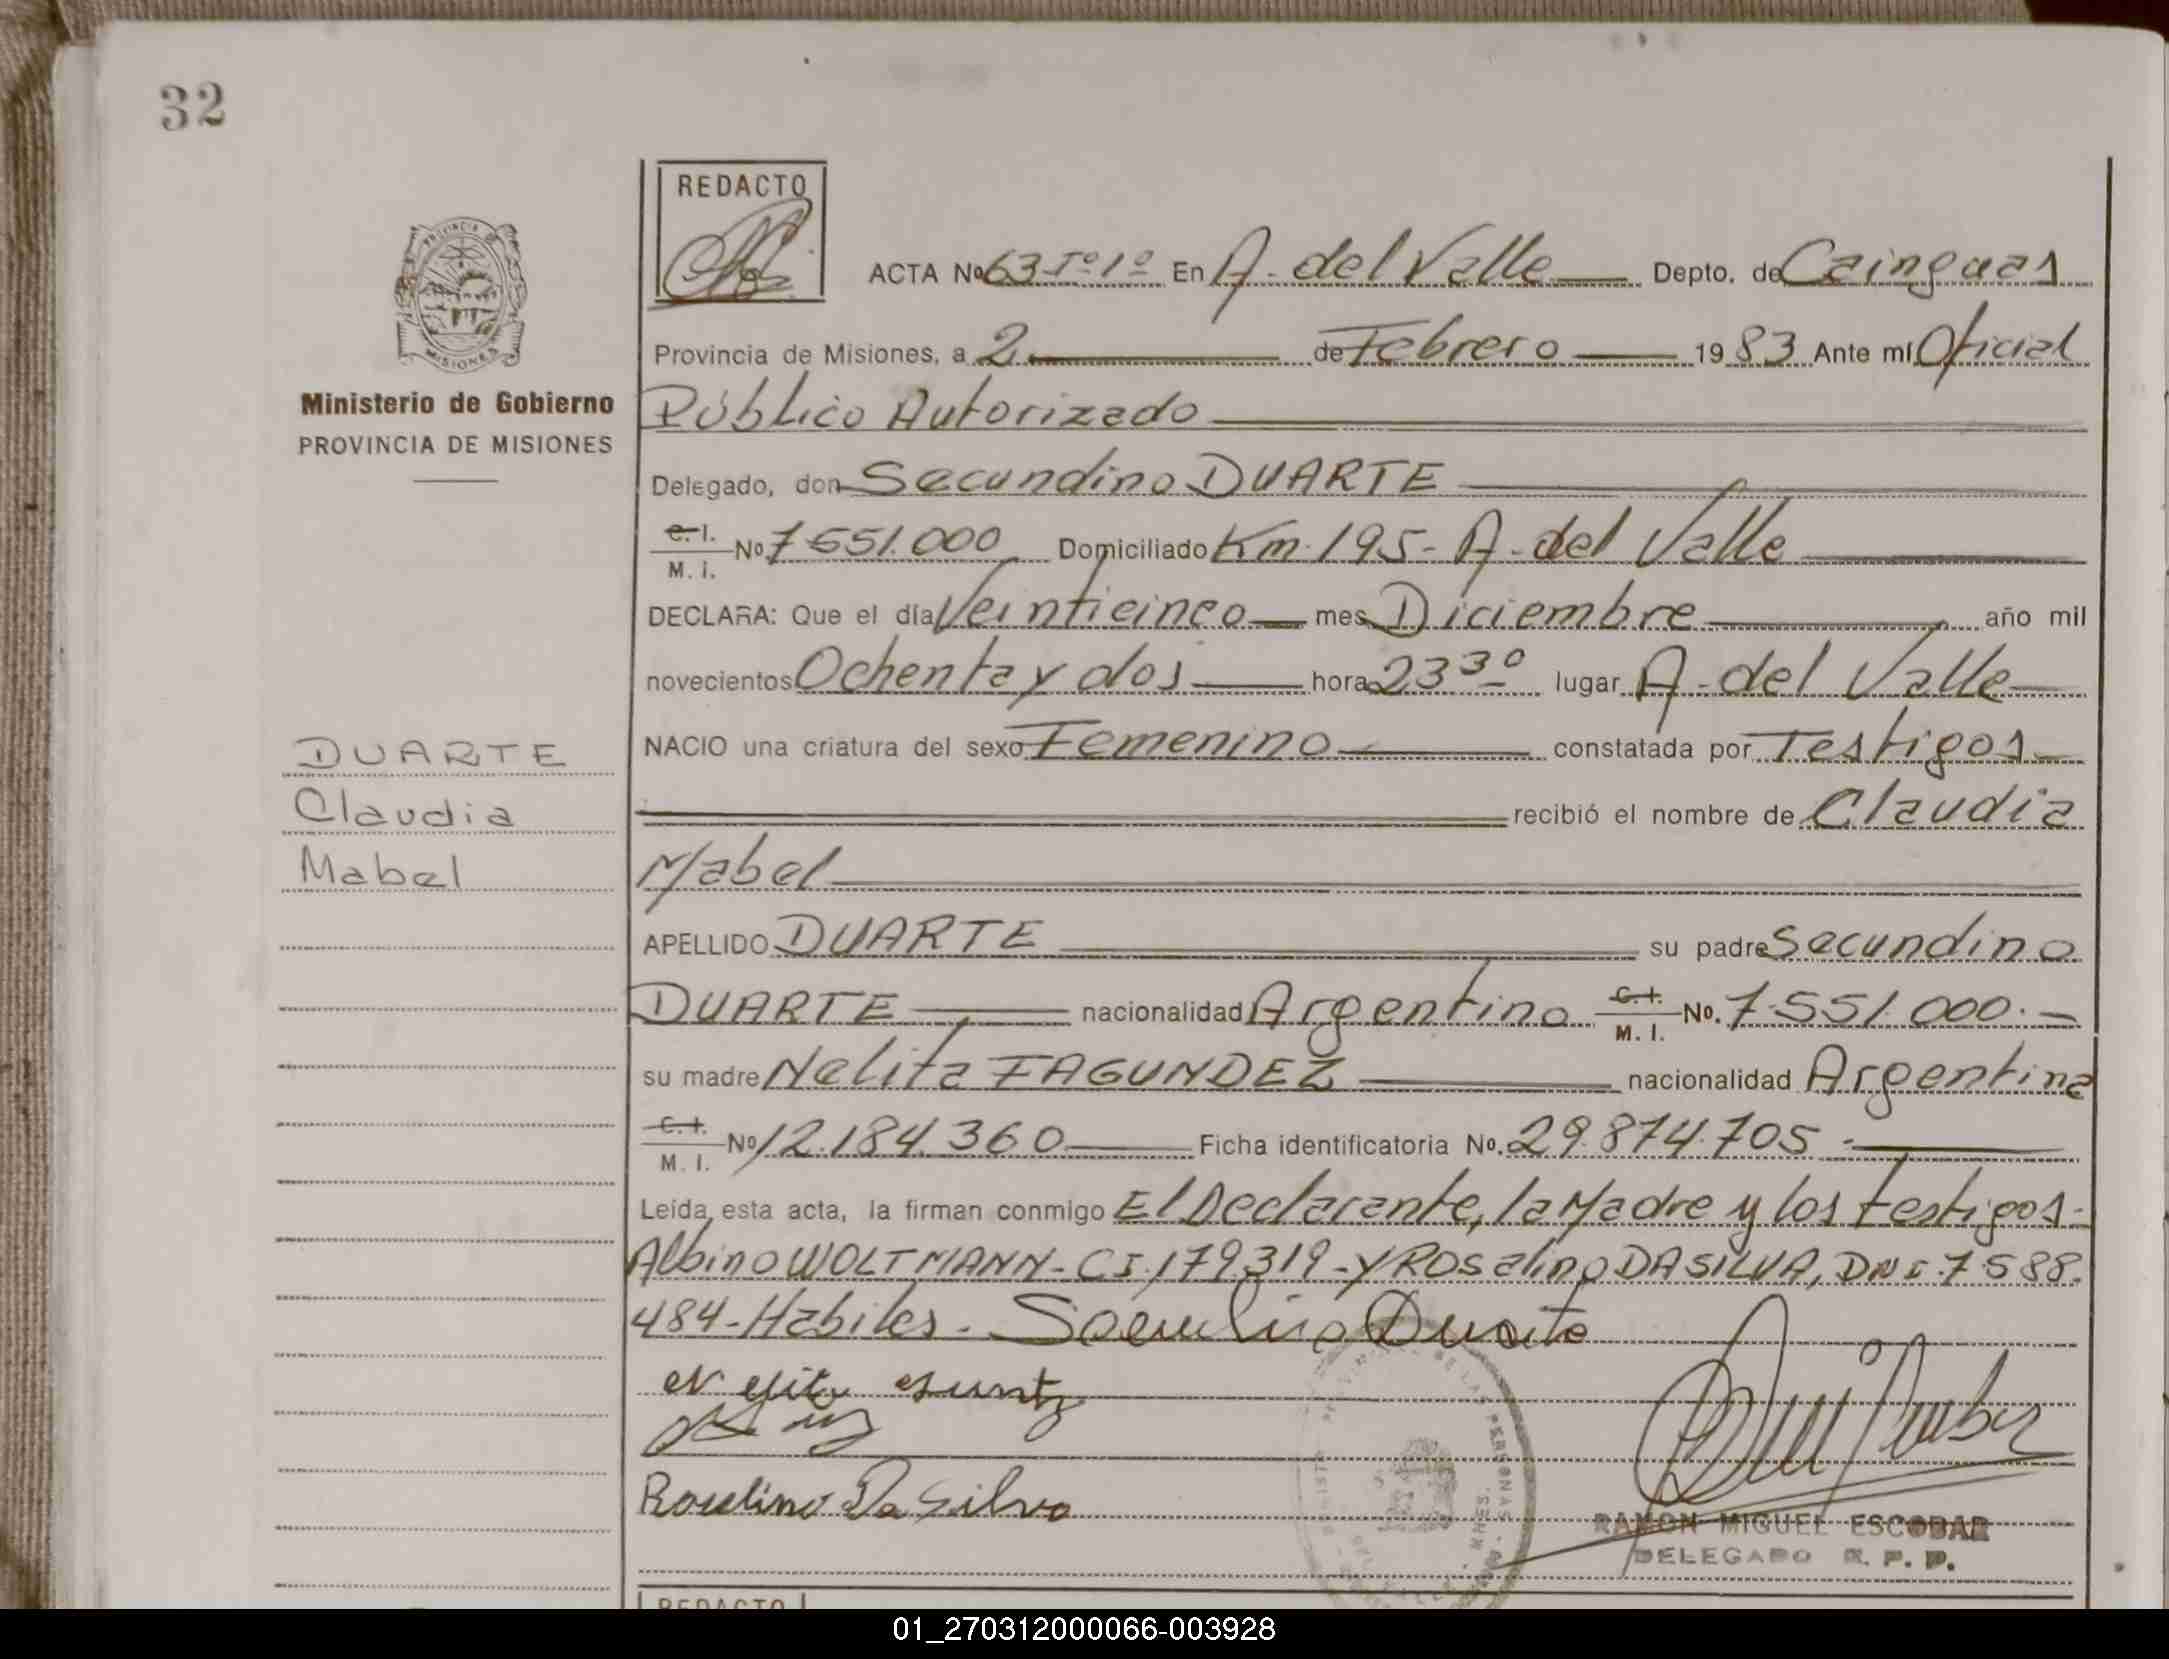 32
REDACTO
ACTA Nº 63 Tº 1º En A. del Valle Depto. de Cainguas
Provincia de Misiones, a 2 de Febrero 1983 Ante mí Oficial
Ministerio de Gobierno
PROVINCIA DE MISIONES
Público Autorizado
Delegado, don Secundino DUARTE
C. I.
M. I. Nº 7.551.000 Domiciliado Km. 195 - A. del Valle
DECLARA: Que el día Veinticinco mes Diciembre año mil
novecientos Ochenta y dos hora 23 30 lugar A. del Valle
NACIO una criatura del sexo Femenino constatada por Testigos
recibió el nombre de Claudia
Mabel
DUARTE
Claudia
Mabel
APELLIDO DUARTE su padre Secundino
DUARTE nacionalidad Argentino C. I. M. I. Nº. 7.551.000.-
su madre Nelita FAGUNDEZ nacionalidad Argentina
C. I. M. I. Nº 12.184.360 Ficha identificatoria Nº. 29.874.705.-
Leída esta acta, la firman conmigo El Declarante, la Madre y los testigos.-
Albino WOLTMANN - CI. 179319 - y ROSalino DA SILVA, DNI. 7.588.
484 - Habiles. - Secundino Duarte
Rosalino Da Silva
RAMON MIGUEL ESCOBAR
DELEGADO R. P. P.
REDACTO
01_270312000066-003928